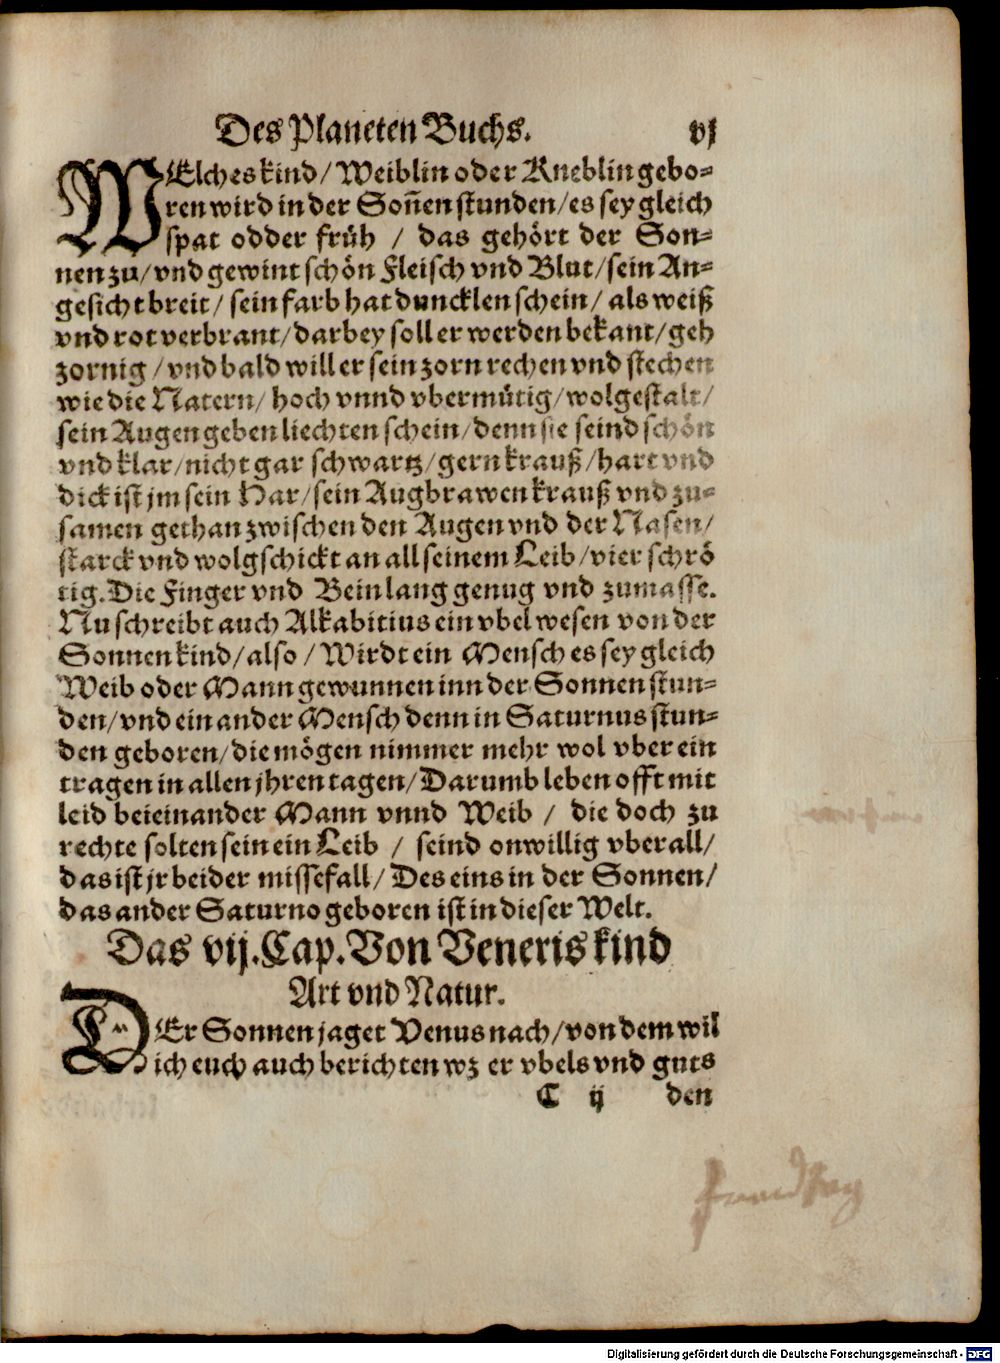 Des Planeten Buchs. vj
WElches kind / Weiblin oder Kneblin gebo⸗
ren wird in der Soñen stunden / es sey gleich
spat odder früh / das gehört der Son⸗
nen zu / vnd gewint schön Fleisch vnd Blut / sein An⸗
gesicht breit / sein farb hat duncklen schein / als weiß
vnd rot verbrant / darbey soll er werden bekant / geh
zornig / vnd bald will er sein zorn rechen vnd stechen
wie die Natern / hoch vnnd vbermütig / wolgestalt /
sein Augen geben liechten schein / denn sie seind schön
vnd klar / nicht gar schwartz / gern krauß / hart vnd
dick ist jm sein Har / sein Augbrawen krauß vnd zu⸗
samen gethan zwischen den Augen vnd der Nasen /
starck vnd wolgschickt an all seinem Leib / vier schrö
tig. Die Finger vnd Bein lang genug vnd zumasse.
Nu schreibt auch Alkabitius ein vbel wesen von der
Sonnen kind / also / Wirdt ein Mensch es sey gleich
Weib oder Mann gewunnen inn der Sonnen stun⸗
den / vnd ein ander Mensch denn in Saturnus stun⸗
den geboren / die mögen nimmer mehr wol vber ein
tragen in allen jhren tagen / Darumb leben offt mit
leid beieinander Mann vnnd Weib / die doch zu
rechte solten sein ein Leib / seind onwillig vber all /
das ist jr beider missefall / Des eins in der Sonnen /
das ander Saturno geboren ist in dieser Welt.
Das vij. Cap. Von Veneris kind
Art vnd Natur.
DEr Sonnen jaget Venus nach / von dem wil
ich euch auch berichten wz er vbels vnd guts
C ij den
Digitalisierung gefördert durch die Deutsche Forschungsgemeinschaft - DFG